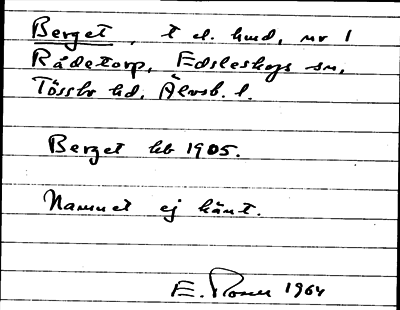 Berget, t. el. hmd, nr 1
Rådetorp, Edsleskogs sn,
Tössbo hd, Älvsb. l.
Berget hb 1905.
Namnet ej känt.
E. 1964